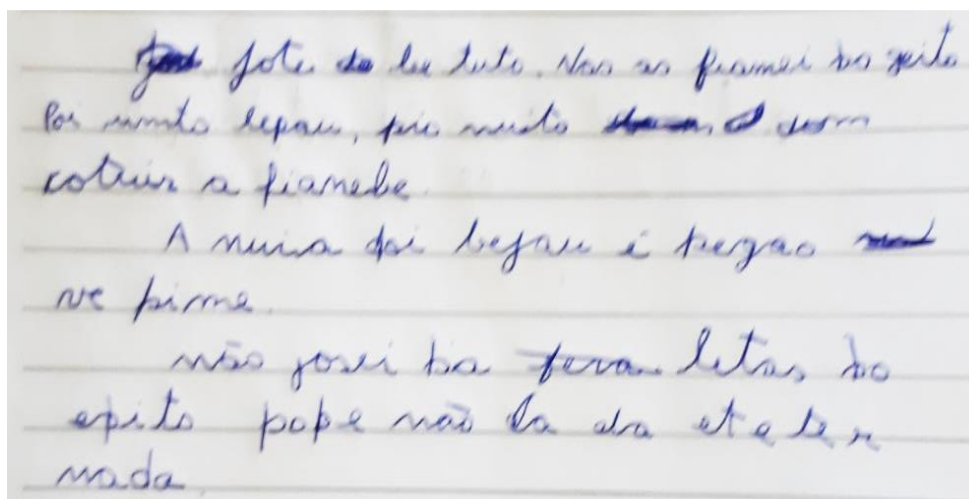 fote de ler tuto. Nas as fiamei do geito
Por umito lepau, pio muito com
cotuir a fianebe.
A muia foi befau e pegao
ve pime.
não josei da letas do
epito pope não da da eteter
nada.